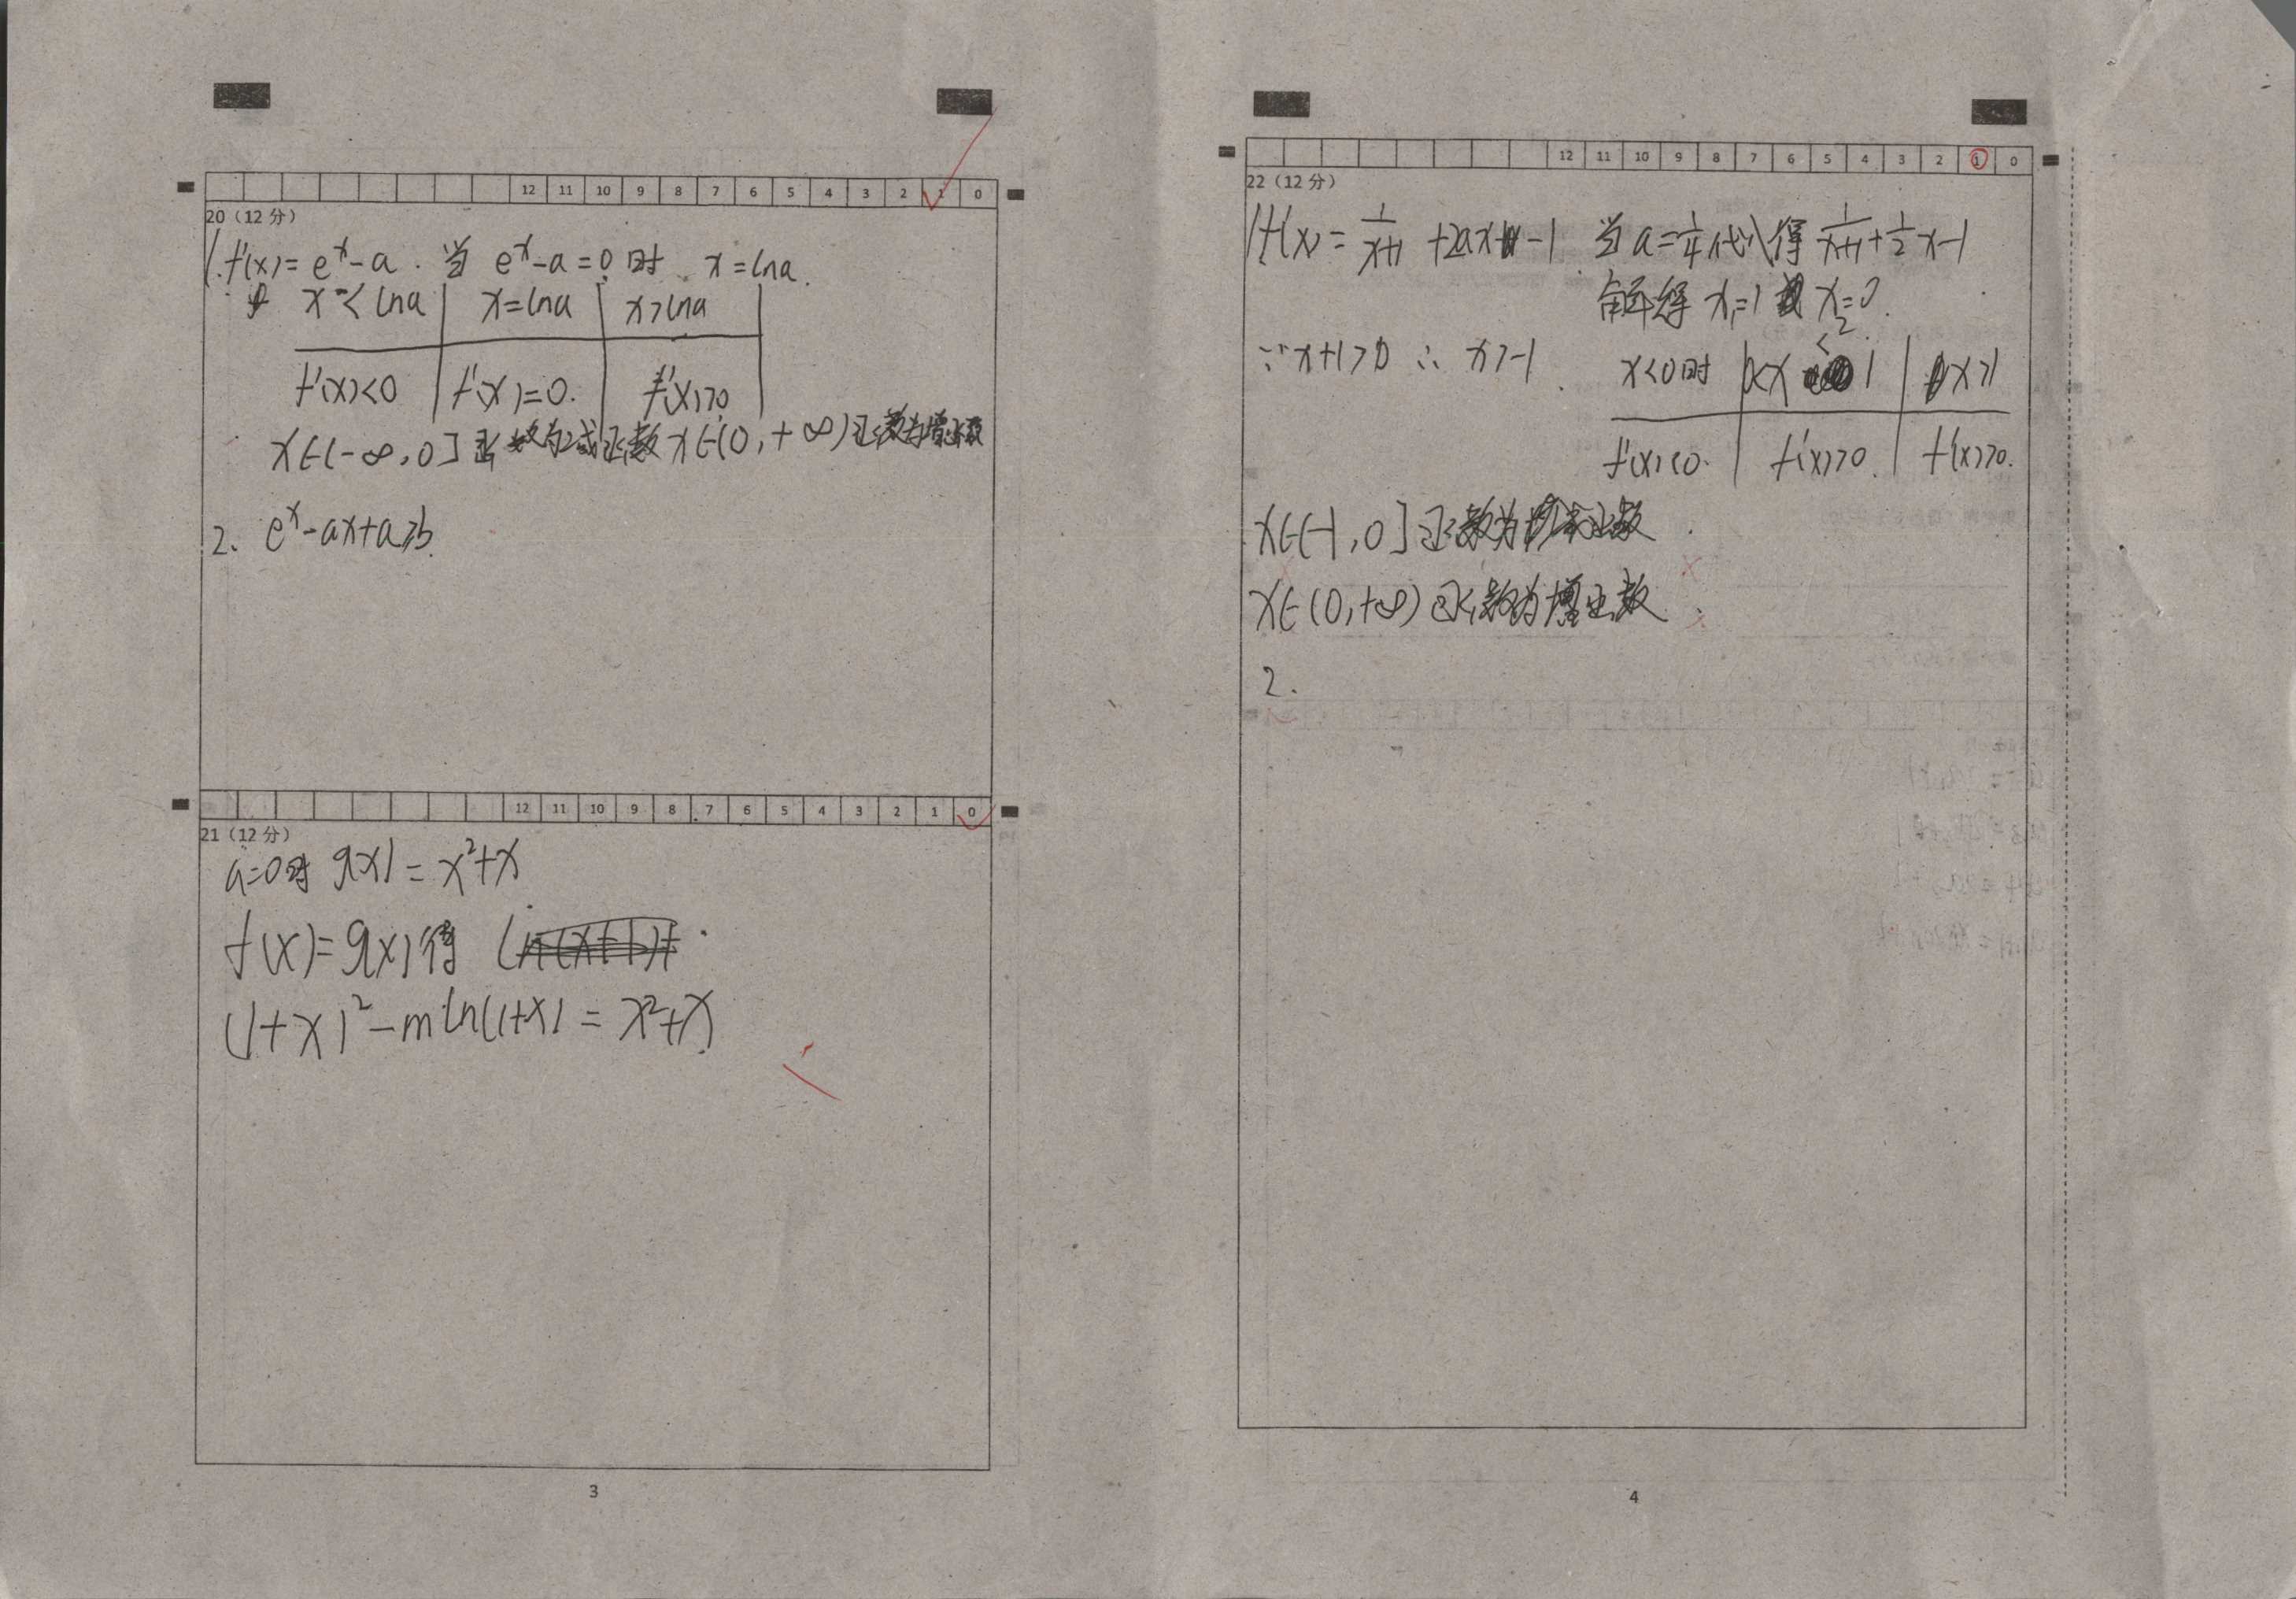 12 11 10 9 8 7 6 5 4 3 2 1 0
20（12 分）
1. f'(x)= eˣ-a . 当 eˣ-a=0时 x=lna.
x<lna | x=lna | x>lna
f'(x)<0 | f'(x)=0. | f'(x)>0
x∈(-∞,0] 函数为减函数 x∈(0,+∞) 函数为增函数
2. eˣ-ax+a≥b
12 11 10 9 8 7 6 5 4 3 2 1 0
21（12 分）
a=0时 g(x)=x²+x
f(x)=g(x)得
(1+x)²-mln(1+x)=x²+x
3
12 11 10 9 8 7 6 5 4 3 2 1 0
22（12 分）
1. f'(x)=1/(x+1)+2ax-1 当a=1/4代入得 1/(x+1)+1/2x-1
解得 x₁=1 x₂=0.
∵x+1>0 ∴ x>-1
x<0时 | 0<x<1 | x>1
f'(x)<0. | f'(x)>0. | f'(x)>0.
x∈(-1,0] 函数为减函数
x∈(0,+∞) 函数为增函数
2.
4